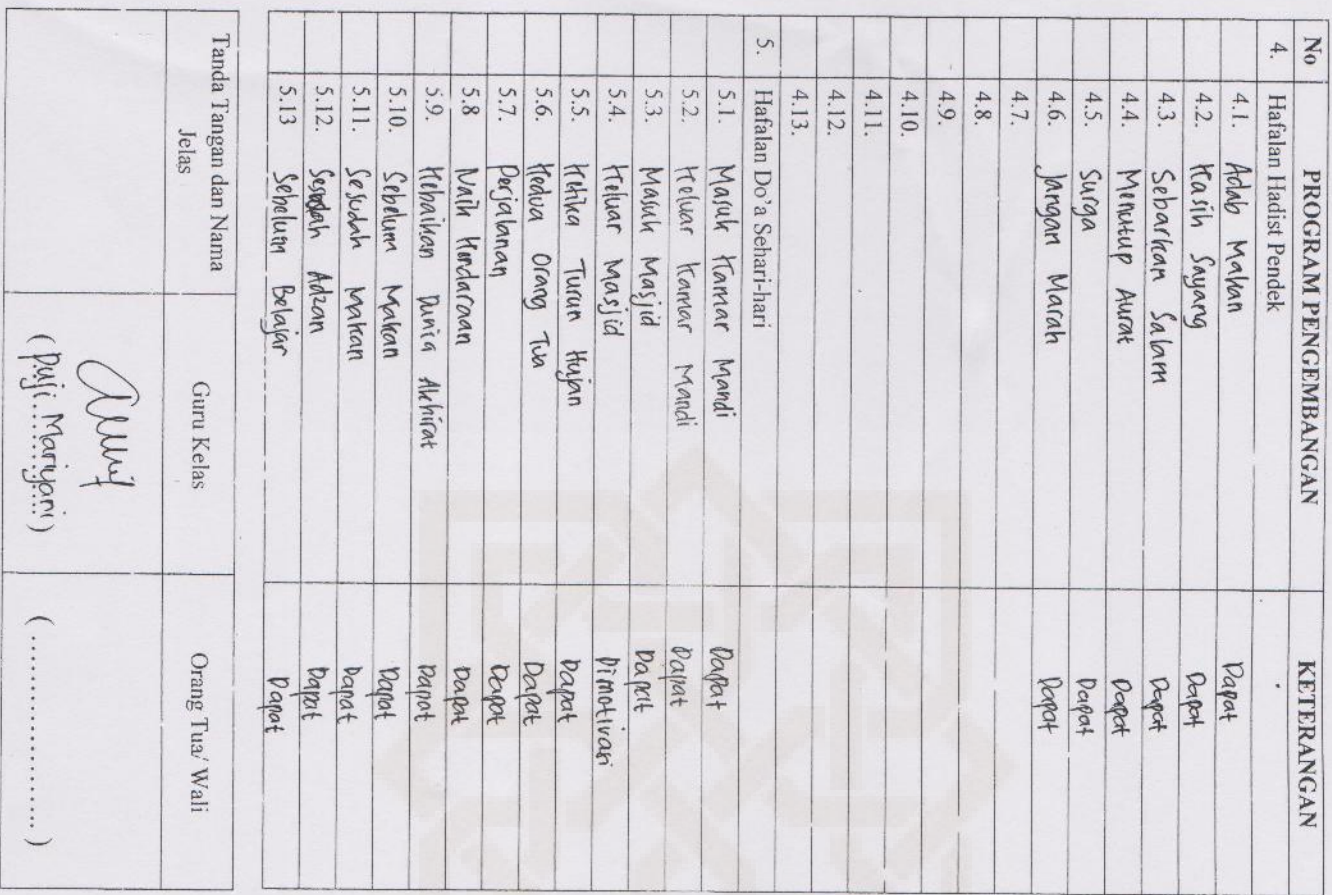 No PROGRAM PENGEMBANGAN KETERANGAN
4. Hafalan Hadist Pendek
4.1. Adab Makan Dapat
4.2. Kasih Sayang Dapat
4.3. Sebarkan Salam Dapat
4.4. Menutup Aurat Dapat
4.5. Surga Dapat
4.6. Jangan Marah Dapat
4.7.
4.8.
4.9.
4.10.
4.11.
4.12.
4.13.
5. Hafalan Do'a Sehari-hari
5.1. Masuk Kamar Mandi Dapat
5.2. Keluar Kamar Mandi Dapat
5.3. Masuk Masjid Dapat
5.4. Keluar Masjid Dimotivasi
5.5. Ketika Turun Hujan Dapat
5.6. Kedua Orang Tua Dapat
5.7. Perjalanan Dapat
5.8 Naik Kendaraan Dapat
5.9. Kebaikan Dunia Akhirat Dapat
5.10. Sebelum Makan Dapat
5.11. Sesudah Makan Dapat
5.12. Sesudah Adzan Dapat
5.13 Sebelum Belajar Dapat
Tanda Tangan dan Nama Jelas Guru Kelas Orang Tua/ Wali
(Puji Mariyani) (................)